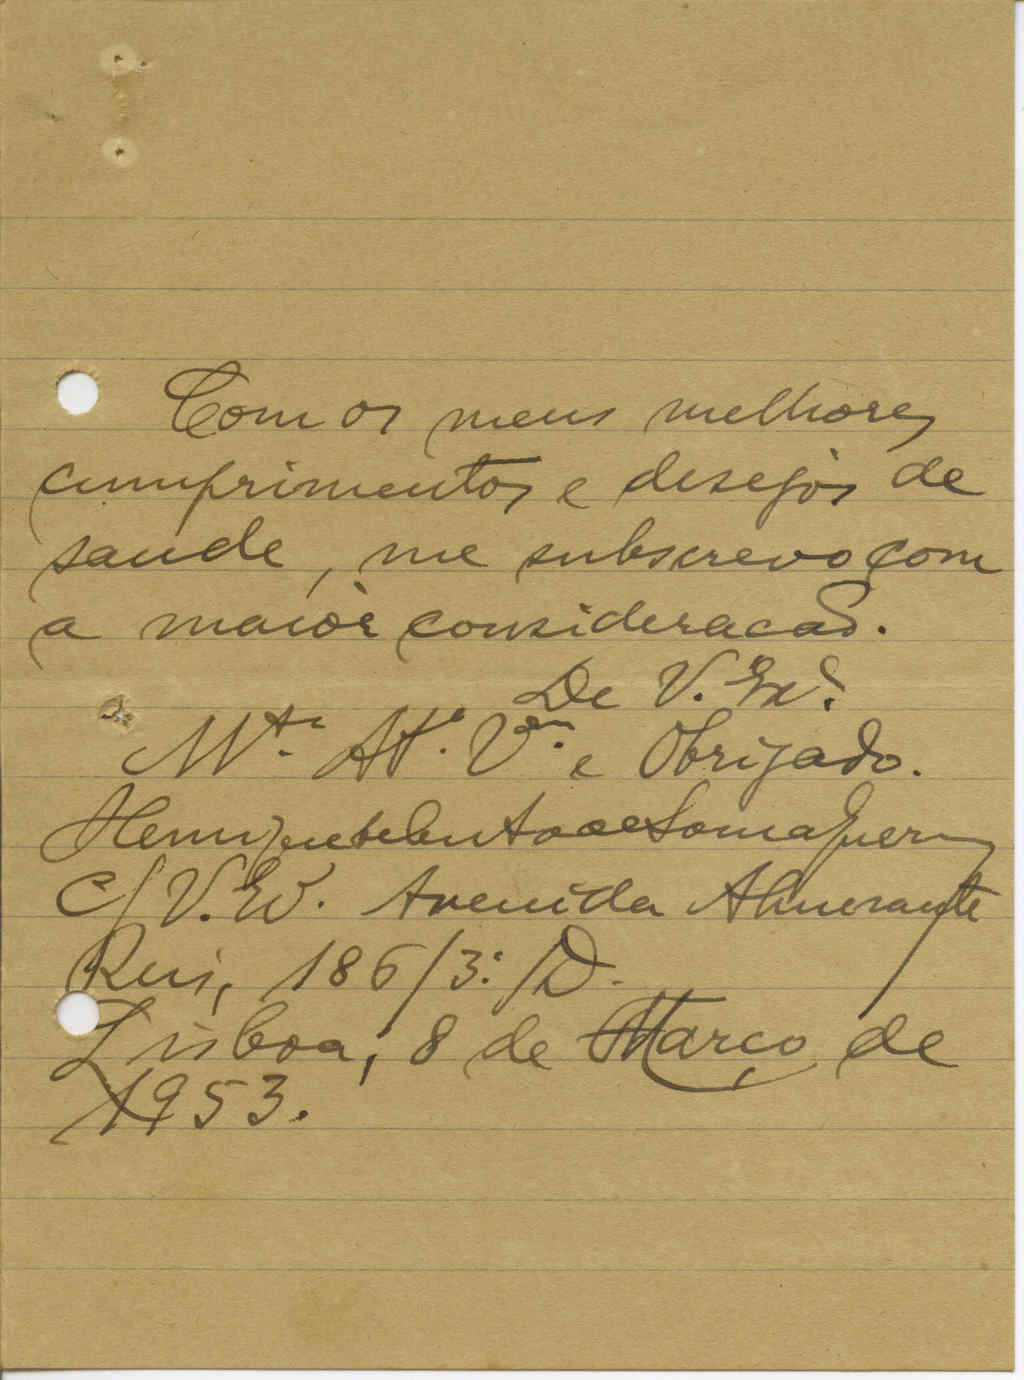 Com os meus melhores
cumprimentos e desejos de
saude, me subscrevo com
a maiór consideracão.
De V. Exª.
Mtº. Attº. Vor. e Obrigado.
Henrique
C/ V. Exª. Avenida Almirante
Reis, 186/3º./D.
Lisboa, 8 de Março de
1953.